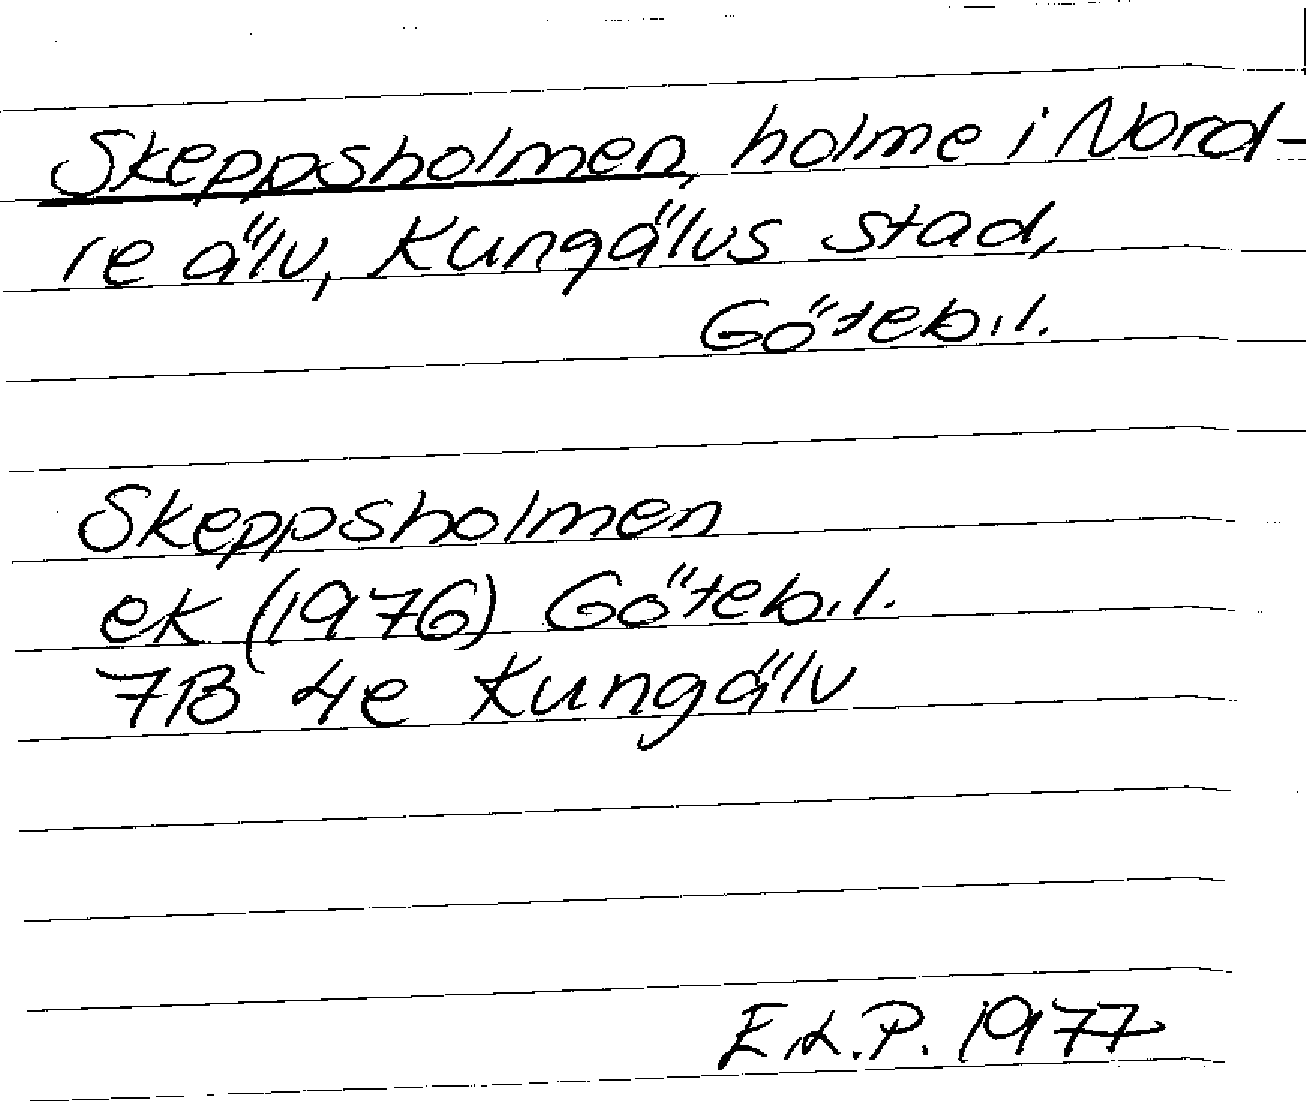 Skeppsholmen, holme i Nord-
re älv, Kungälvs stad,
Göteb.l.
Skeppsholmen
ek (1976) Göteb.l.
7B 4e Kungälv
E.L.P. 1977